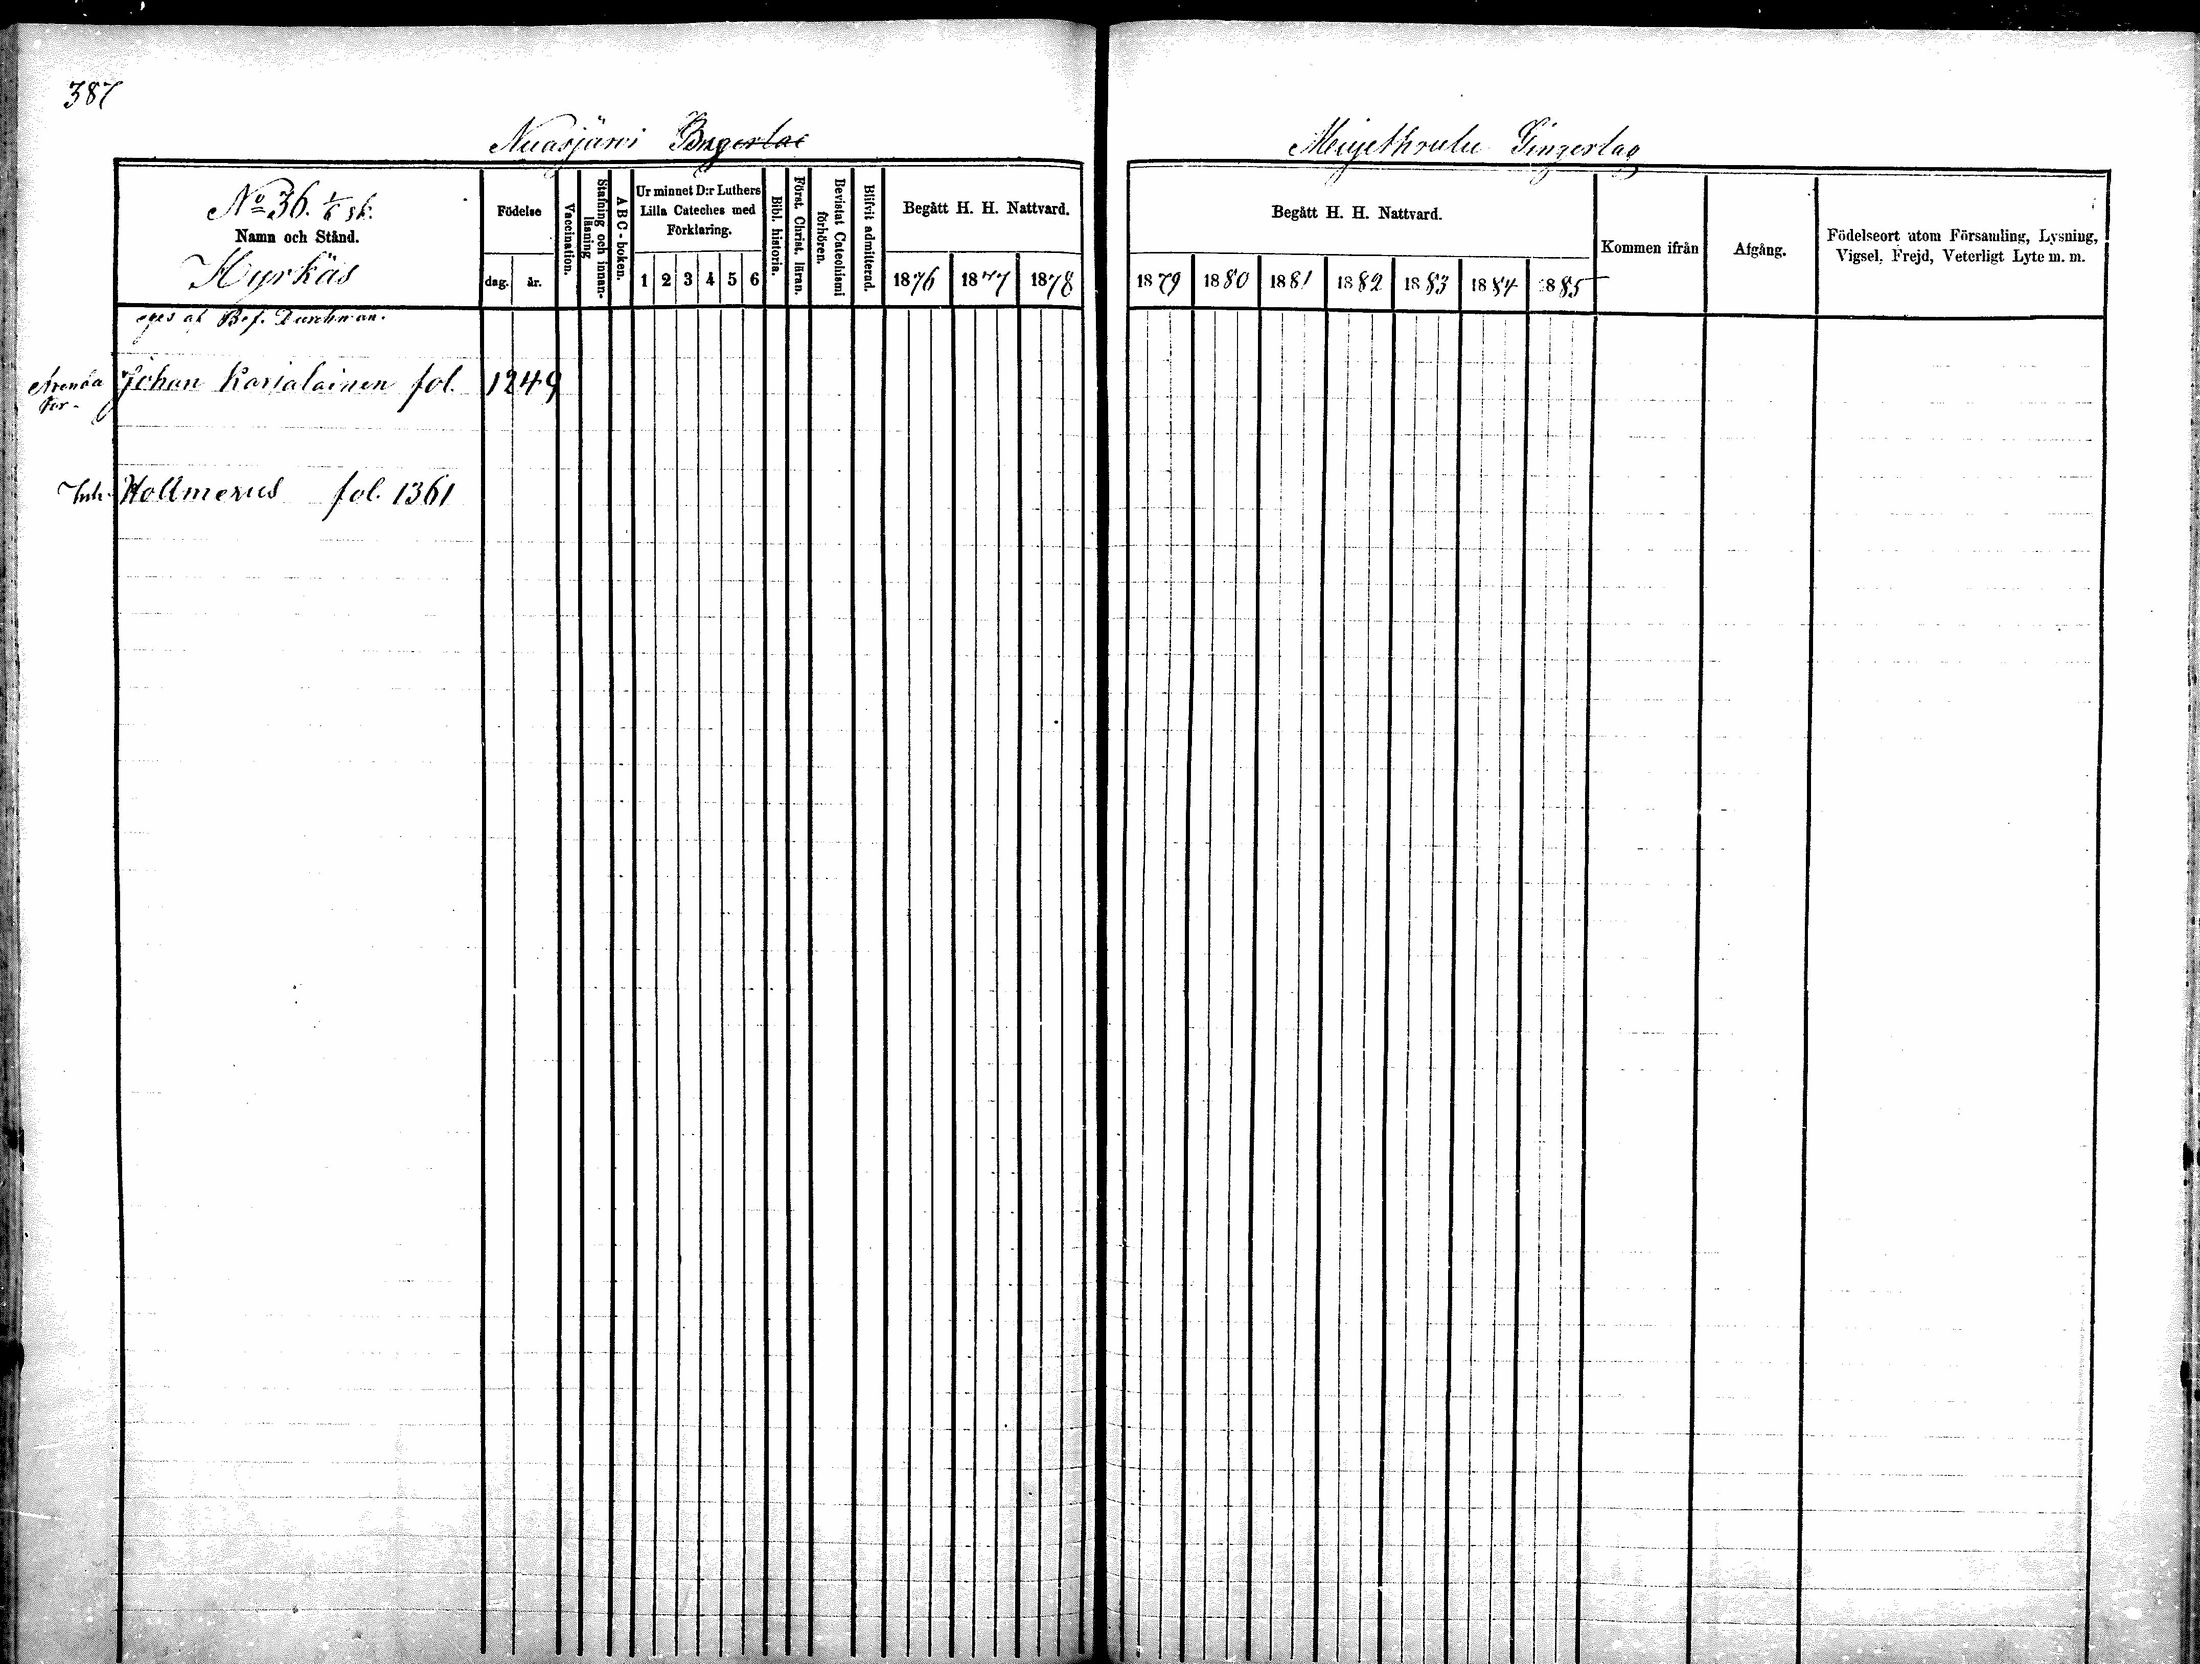 387
Nuasjärvi
No 36. 1/6 sk.
Namn och Stånd.
Hyrkäs
Födelse
dag.
år.
Vaccination.
Stafning och innan-
läsning
ABC-boken.
Ur minnet D:r Luthers
Lilla Cateches med
Förklaring.
1 2 3 4 5 6
Bibl. historia.
Först. Christ. läran.
Bevistat Catechismi
förhören.
Blifvit admitterad.
Begått H. H. Nattvard.
1876 1877 1878
Begått H. H. Nattvard.
1879 1880 1881 1882 1883 1884 1885
Kommen ifrån
Afgång.
Födelseort utom Församling, Lysning,
Vigsel, Frejd, Veterligt Lyte m. m.
eges af Bef. Durchman.
Arenda
tor. Johan Karjalainen fol. 1249
Inh. Hollmerus fol. 1361